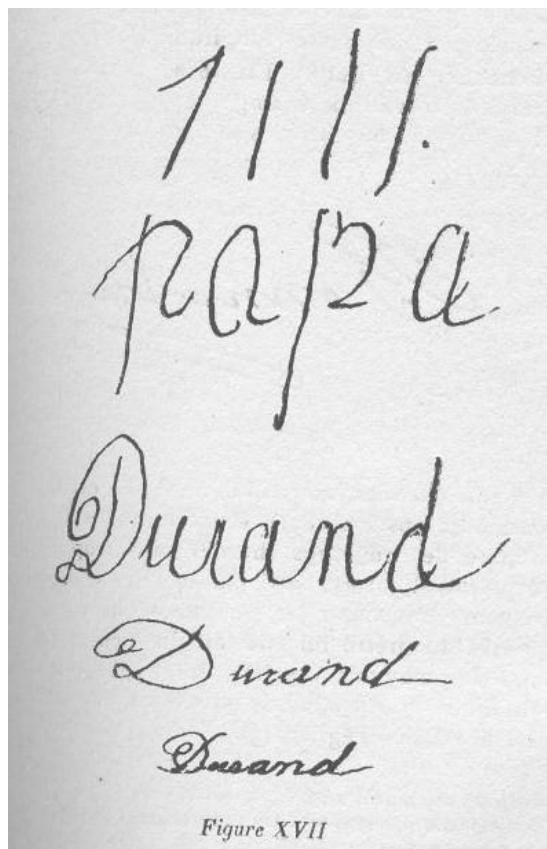 1 1 1 1.
papa
Durand
Durand
Durand
Figure XVII